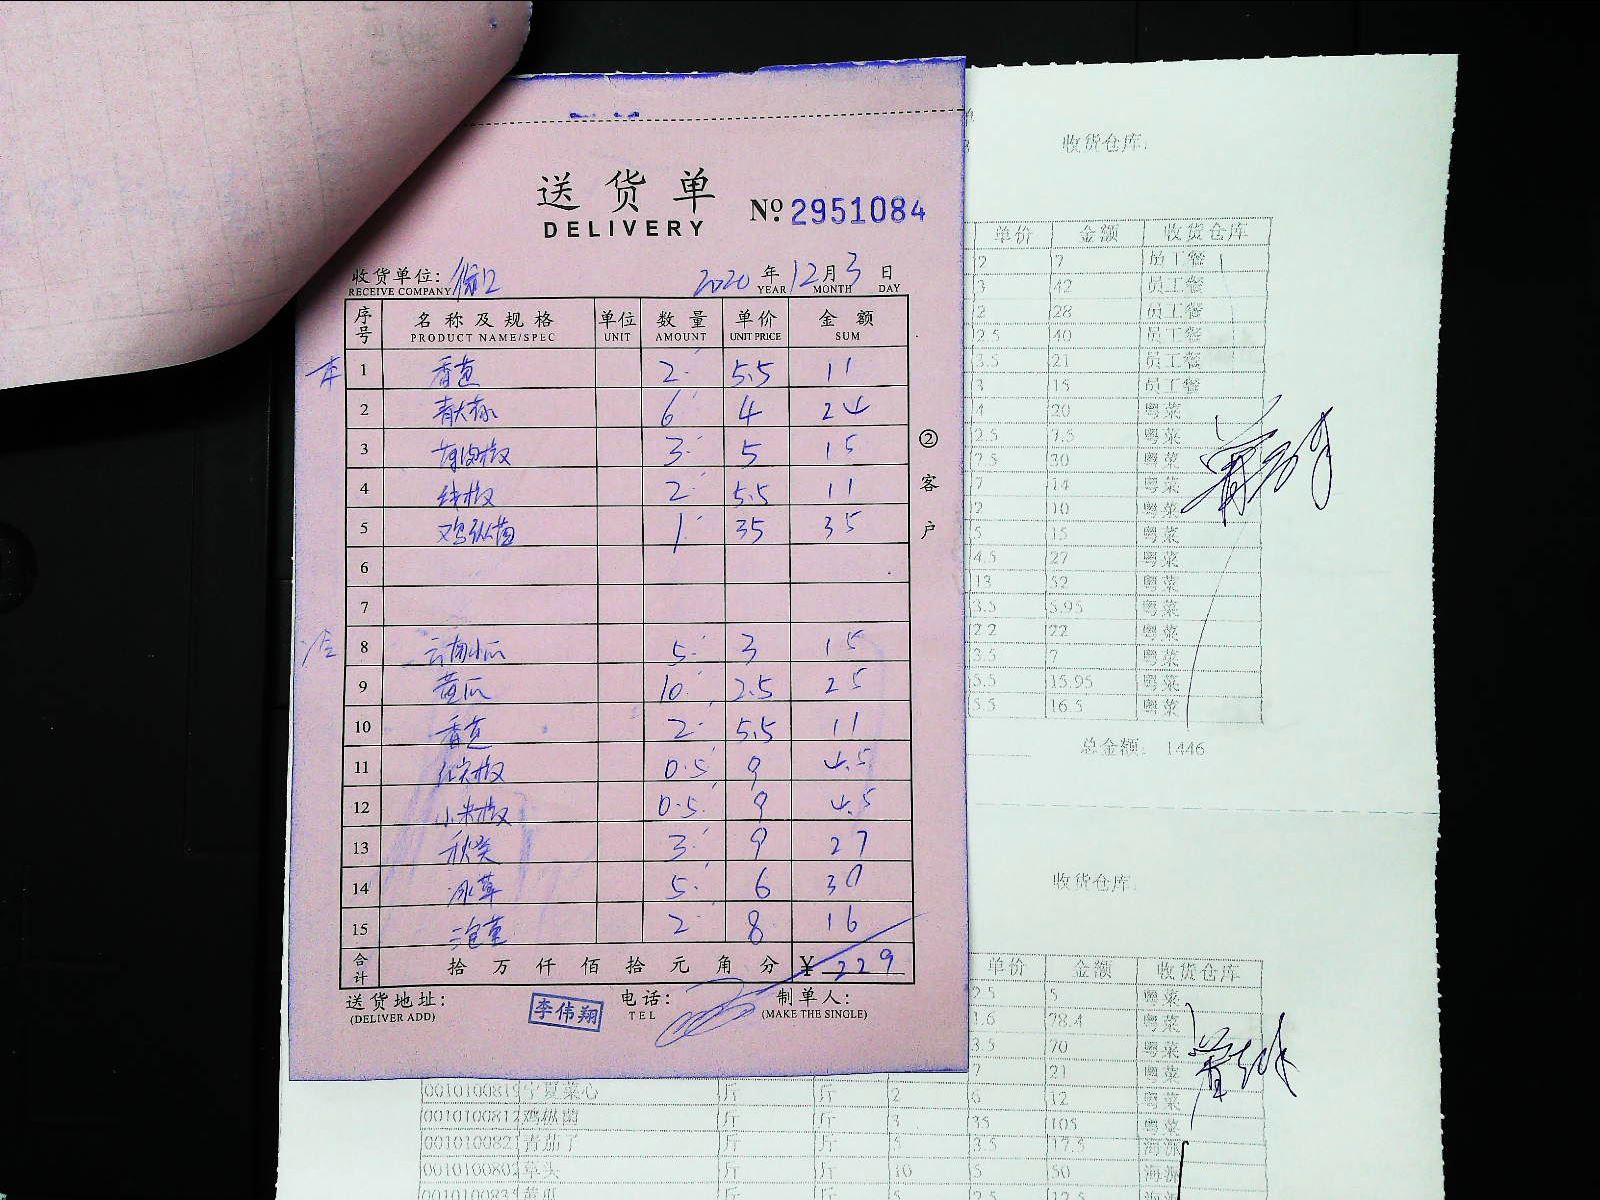 送货单
DELIVERY
№ 2951084
收货单位:
RECEIVE COMPANY
2020 年 12 月 3 日
YEAR MONTH DAY
序号 名称及规格 单位 数量 单价 金额
PRODUCT NAME/SPEC UNIT AMOUNT UNIT PRICE SUM
本 1 香芭 2 5.5 11
2 6 4 24
3 3 5 15
4 线椒 2 5.5 11
5 鸡纵菌 1 35 35
6
7
冷 8 云南小瓜 5 3 15
9 黄瓜 10 2.5 25
10 香芭 2 5.5 11
11 0.5 9 4.5
12 小米椒 0.5 9 4.5
13 秋葵 3 9 27
14 冰草 5 6 30
15 2 8 16
合计 拾 万 仟 佰 拾 元 角 分 ¥ 229
送货地址: 电话: 制单人:
(DELIVER ADD) TEL (MAKE THE SINGLE)
李伟翔
②客户
收货仓库:
单价 金额 收货仓库
2 7 员工餐
3 42 员工餐
2 28 员工餐
2.5 40 员工餐
3.5 21 员工餐
3 15 员工餐
4 20 粤菜
2.5 7.5 粤菜
7.5 30 粤菜
7 14 粤菜
2 10 粤菜
5 15 粤菜
4.5 27 粤菜
13 52 粤菜
3.5 5.95 粤菜
22 22 粤菜
3.5 7 粤菜
5.5 15.95 粤菜
5.5 16.5 粤菜
总金额: 1446
收货仓库:
单价 金额 收货仓库
2.5 5 粤菜
78.4 粤菜
3.5 70 粤菜
7 21 粤菜
0010100819 宁夏菜心 斤 斤 2 6 12 粤菜
0010100812 鸡纵菌 斤 斤 3 35 105 粤菜
001010082 青茄子 斤 斤 5 3.5 17.5 海源
001010080 草头 斤 斤 10 5 50 海源